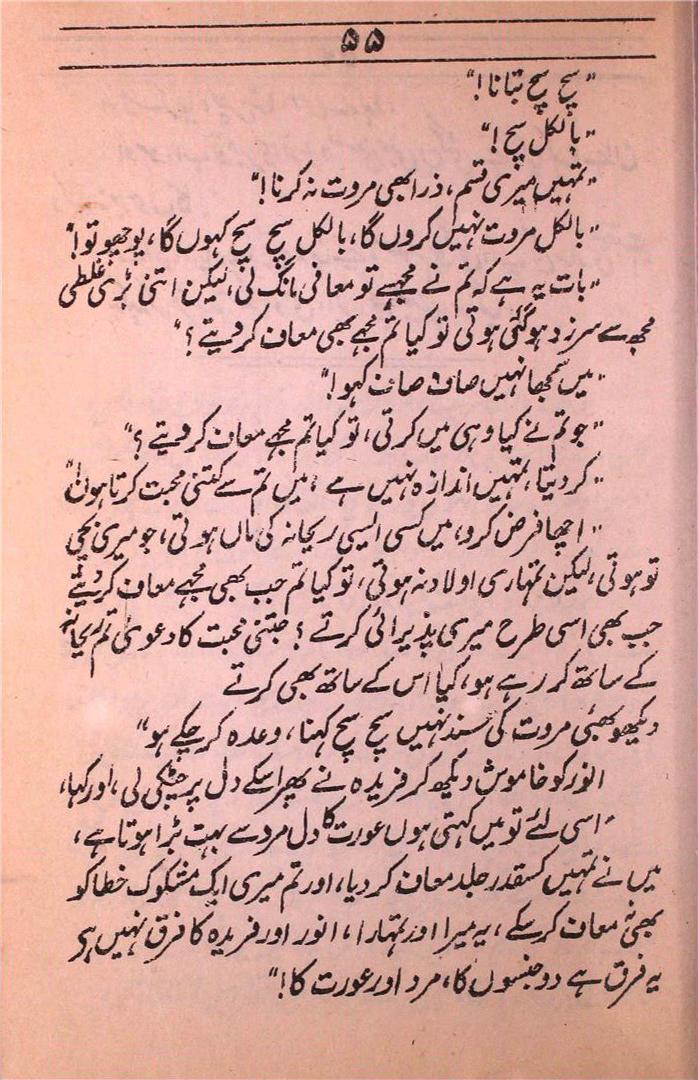 ۵۵
"سچ سچ بتانا!"
"بالکل سچ!"
"تمہیں میری قسم، ذرا بھی مروت نہ کرنا!"
"بالکل مروت نہیں کروں گا، بالکل سچ سچ کہوں گا، پوچھو تو!"
"بات یہ ہے کہ تم نے مجھ سے تو معافی مانگ لی، لیکن اتنی بڑی غلطی
مجھ سے سرزد ہو گئی ہوتی تو کیا تم مجھے بھی معاف کر دیتے؟"
"میں سمجھا نہیں صاف صاف کہو!"
"جو تم نے کیا وہی میں کرتی، تو کیا تم مجھے معاف کر دیتے؟"
"کر دیتا، تمہیں اندازہ نہیں ہے، میں تم سے کتنی محبت کرتا ہوں"
"اچھا فرض کرو، میں کسی ایسی ریحانہ کی ماں ہوتی، جو میری بچی
تو ہوتی، لیکن تمہاری اولاد نہ ہوتی، تو کیا تم جب بھی مجھے معاف کر دیتے
جب بھی اسی طرح میری پذیرائی کرتے؟ جتنی محبت کا دعویٰ تم ریحانہ
کے ساتھ کر رہے ہو، کیا اس کے ساتھ بھی کرتے
دیکھو بھئی مروت کی سند نہیں سچ سچ کہنا، وعدہ کر چکے ہو"
انور کو خاموش دیکھ کر فریدہ نے پھر اسکے دل پر چٹکی لی، اور کہا،
"اسی لئے تو میں کہتی ہوں عورت کا دل مرد سے بہت بڑا ہوتا ہے،
میں نے تمہیں کسقدر جلد معاف کر دیا، اور تم میری ایک مشکوک خطا کو
بھی نہ معاف کر سکے، یہ میرا اور تمہارا، انور اور فریدہ کا فرق نہیں ہے
یہ فرق ہے دو جنسوں کا، مرد اور عورت کا!"